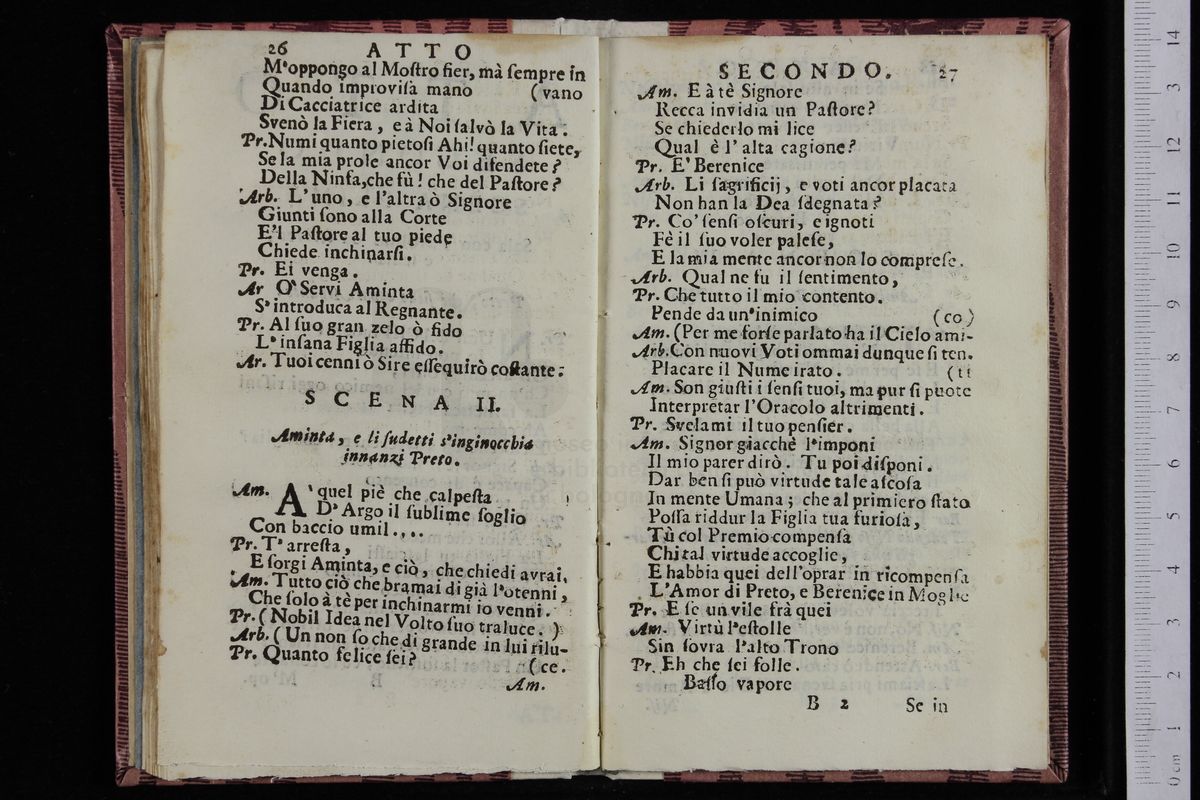 26 ATTO
M'oppongo al Moſtro fier, mà ſempre in
Quando improviſà mano (vano
Di Cacciatrice ardita
Svenò la Fiera, e à Noi ſalvò la Vita.
Pr. Numi quanto pietoſi Ahi! quanto ſiete,
Se la mia prole ancor Voi difendete?
Della Ninfa, che fù! che del Paſtore?
Arb. L'uno, e l'altra ò Signore
Giunti ſono alla Corte
E'l Paſtore al tuo piede
Chiede inchinarſi.
Pr. Ei venga.
Ar O' Servi Aminta
S'introduca al Regnante.
Pr. Al ſuo gran zelo ò fido
L'inſana Figlia affido.
Ar. Tuoi cenni ò Sire eſſequirò coſtante:
SCENA II.
Aminta, e li ſudetti s'inginocchia
innanzi Preto.
Am. A'quel piè che calpeſta
D'Argo il ſublime ſoglio
Con baccio umil....
Pr. T'arreſta,
E ſorgi Aminta, e ciò, che chiedi avrai.
Am. Tutto ciò che bramai di già l'otenni,
Che ſolo à tè per inchinarmi io venni.
Pr. (Nobil Idea nel Volto ſuo traluce.)
Arb. (Un non ſo che di grande in lui rilu-
Pr. Quanto felice ſei? (ce.
Am.
SECONDO. 27
Am. E à tè Signore
Recca invidia un Paſtore?
Se chiederlo mi lice
Qual è l'alta cagione?
Pr. E' Berenice
Arb. Li ſagrificij, e voti ancor placata
Non han la Dea ſdegnata?
Pr. Co' ſenſi oſcuri, e ignoti
Fè il ſuo voler paleſe,
E la mia mente ancor non lo compreſe.
Arb. Qual ne fu il ſentimento,
Pr. Che tutto il mio contento.
Pende da un'inimico (co)
Am. (Per me forſe parlato ha il Cielo ami-
Arb. Con nuovi Voti ommai dunque ſi ten.
Placare il Nume irato. (ti
Am. Son giuſti i ſenſi tuoi, ma pur ſi puote
Interpretar l'Oracolo altrimenti.
Pr. Svelami il tuo penſier.
Am. Signor giacchè l'imponi
Il mio parer dirò. Tu poi diſponi.
Dar ben ſi può virtude tale aſcoſa
In mente Umana; che al primiero ſtato
Poſſa riddur la Figlia tua furioſa,
Tù col Premio compenſa
Chi tal virtude accoglie,
E habbia quei dell'oprar in ricompenſa
L'Amor di Preto, e Berenice in Moglie
Pr. E ſe un vile frà quei
Am. Virtù l'eſtolle
Sin ſovra l'alto Trono
Pr. Eh che ſei folle.
Baſſo vapore
B 2 Se in